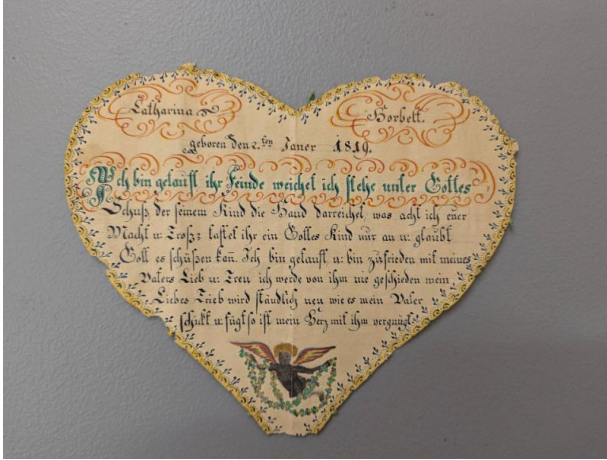 Catharina Horbelt.
geboren den 2.ten Janer 1819.
Ich bin getauft ihr Feinde weichet ich stehe unter Gottes
Schuß, der seinem Kind die Hand darreichet, was acht ich eüer
Macht u: Troß? tastet ihr ein Gottes Kind nur an u: glaubt
Gott es schüßen kan̄. Ich bin getauft u: bin zufrieden mit meines
Vaters Lieb u: Treu ich werde von ihm nie geschieden mein
Liebes Trieb wird ständlich neu wie es mein Vater
schickt u fügt so ist mein Herz mit ihm vergnügt